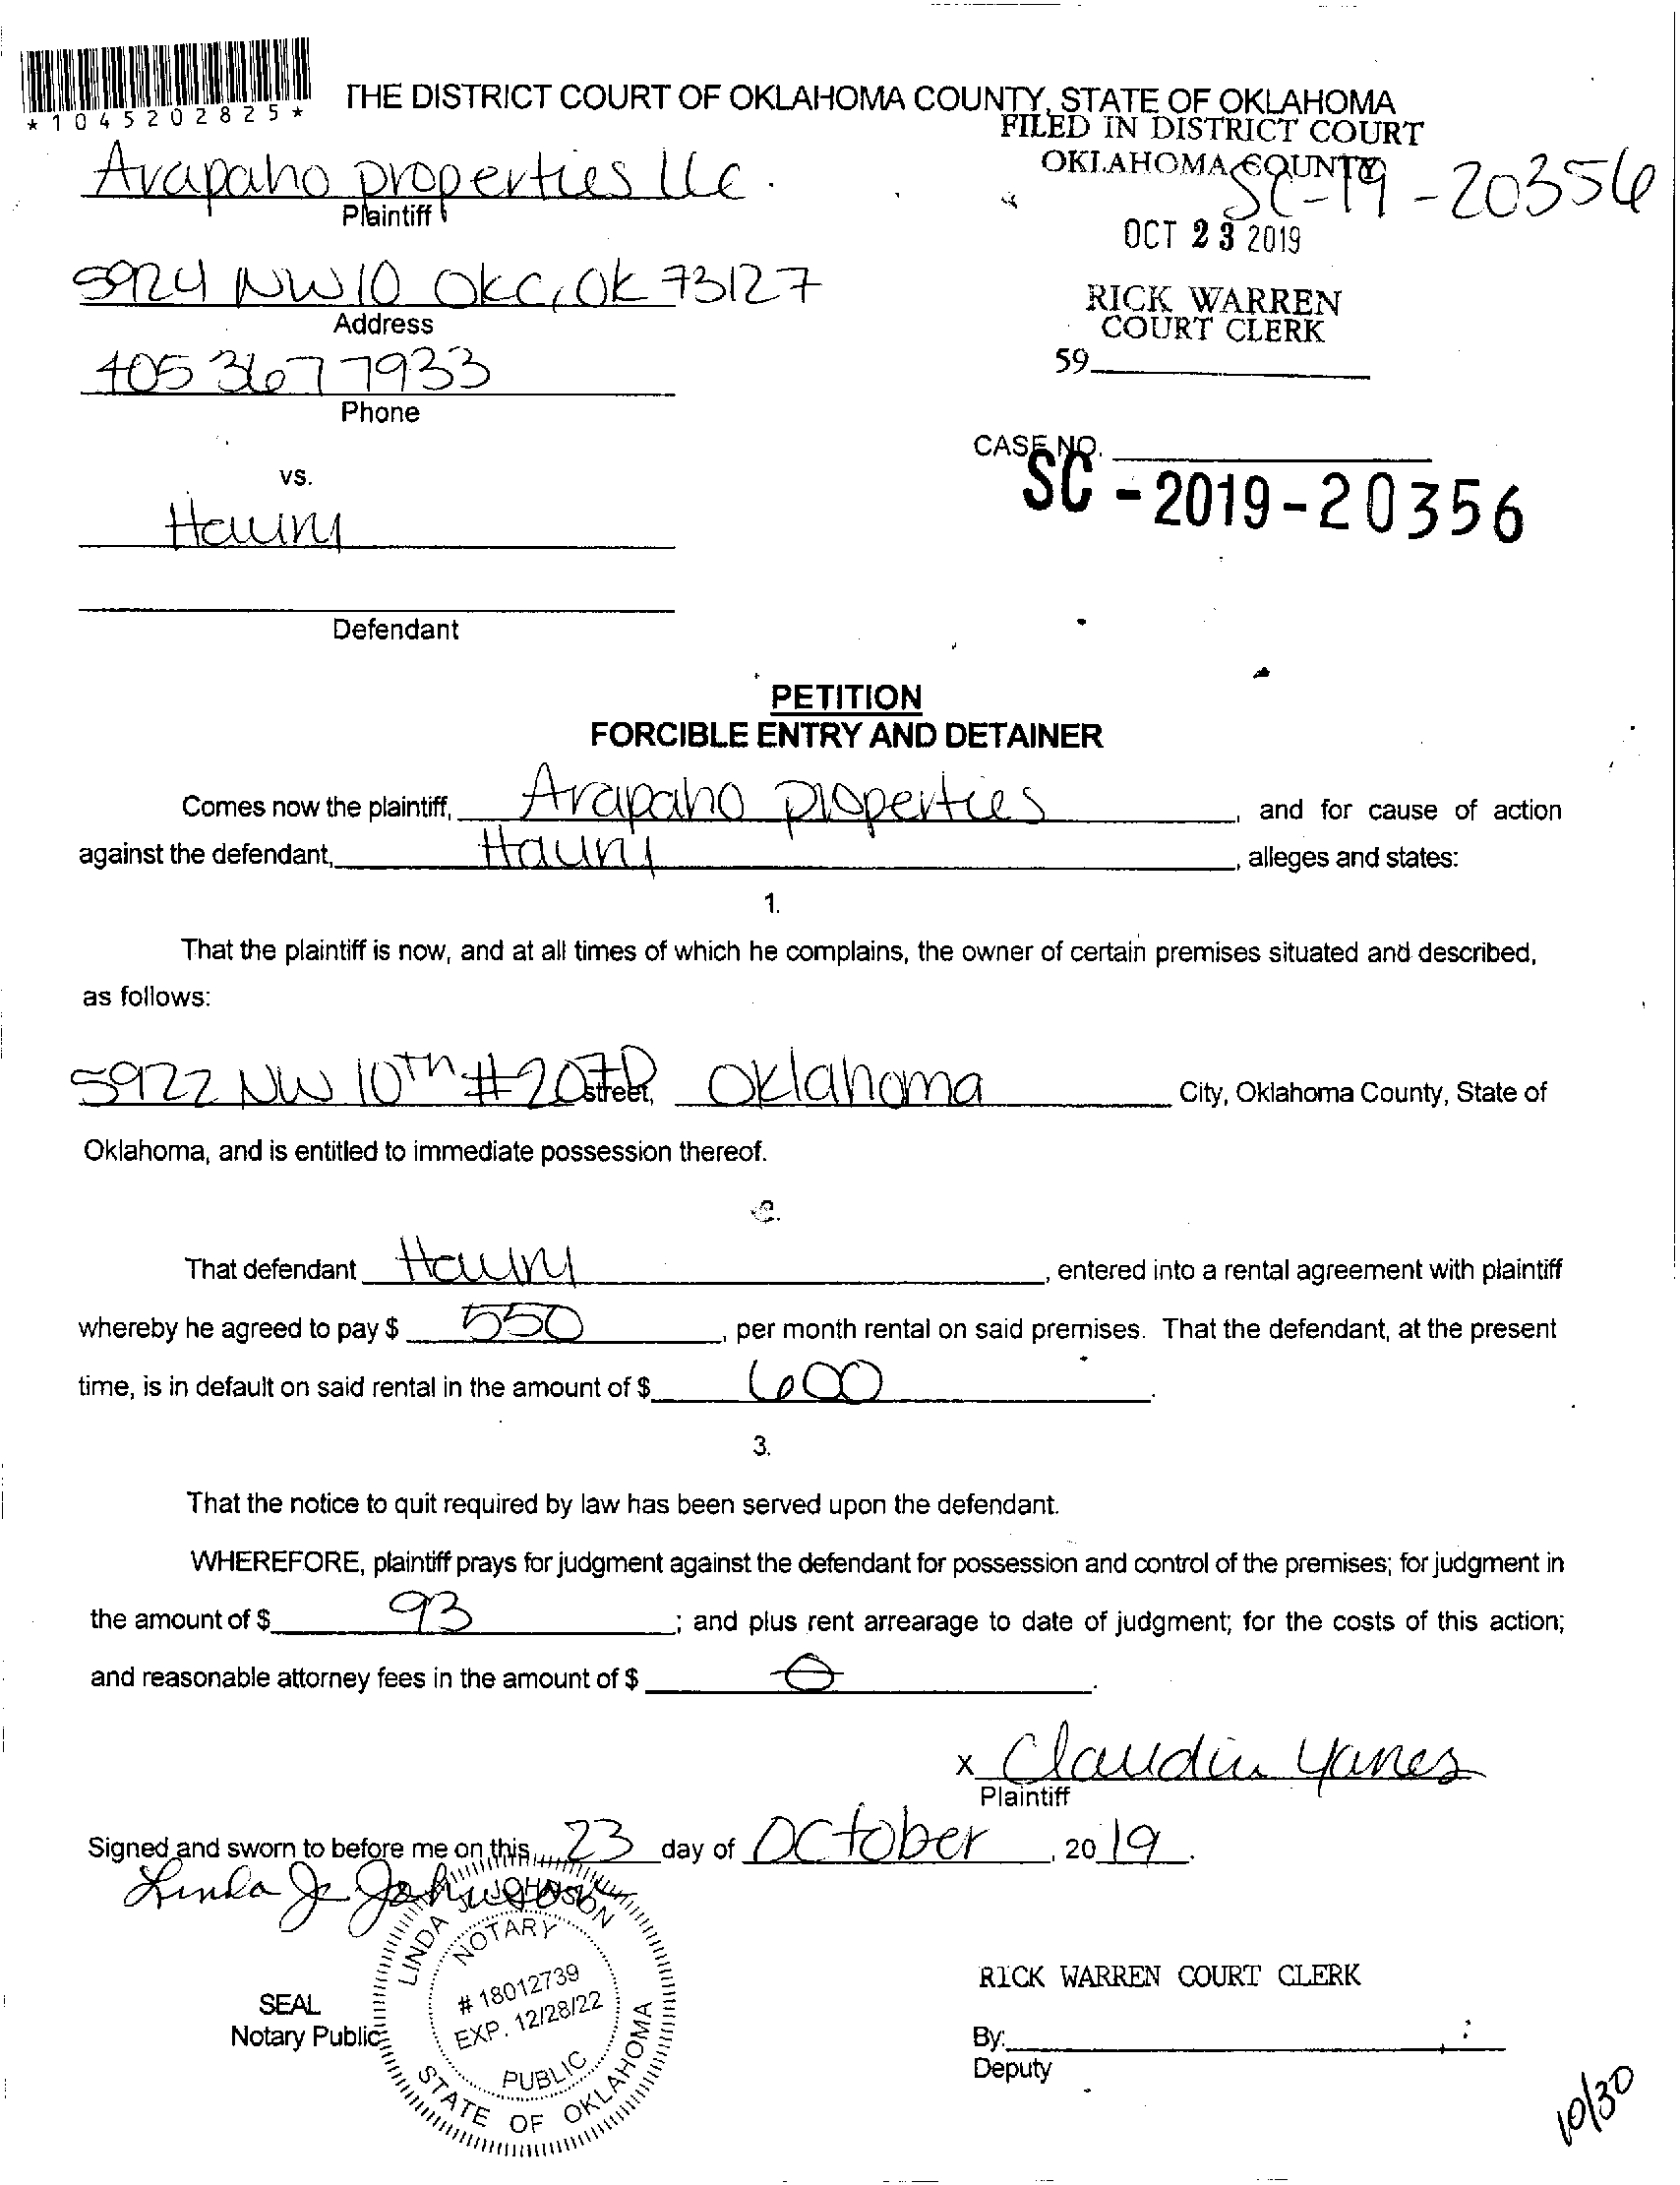 THE DISTRICT COURT OF OKLAHOMA COUNTY, STATE OF OKLAHOMA
*1045202825*
FILED IN DISTRICT COURT
OKLAHOMA COUNTY
Arapaho properties llc.
SC-19-20356
Plaintiff
OCT 23 2019
5924 NW 10 OKC, OK 73127
Address
RICK WARREN
COURT CLERK
405 367 7933
59
Phone
CASE NO.
SC-2019-20356
vs.
Defendant
PETITION
FORCIBLE ENTRY AND DETAINER
Comes now the plaintiff, Arapaho properties, and for cause of action
against the defendant, , alleges and states:
1.
That the plaintiff is now, and at all times of which he complains, the owner of certain premises situated and described,
as follows:
5922 NW 10TH #207P street, Oklahoma City, Oklahoma County, State of
Oklahoma, and is entitled to immediate possession thereof.
That defendant , entered into a rental agreement with plaintiff
whereby he agreed to pay $ 550, per month rental on said premises. That the defendant, at the present
time, is in default on said rental in the amount of $ 600.
3.
That the notice to quit required by law has been served upon the defendant.
WHEREFORE, plaintiff prays for judgment against the defendant for possession and control of the premises; for judgment in
the amount of $ 93; and plus rent arrearage to date of judgment; for the costs of this action;
and reasonable attorney fees in the amount of $ 0.
x Claudia Yanes
Plaintiff
Signed and sworn to before me on this 23 day of October, 2019.
Linda J. Johnson
LINDA J. JOHNSON
NOTARY
# 18012739
EXP. 12/28/22
PUBLIC
STATE OF OKLAHOMA
SEAL
Notary Public
RICK WARREN COURT CLERK
By:
Deputy
10/30